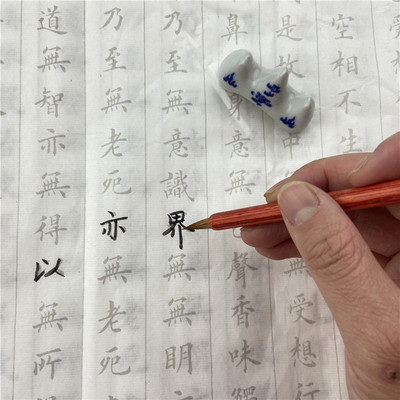 空相不生
是故中無受想行
鼻身意無色聲香味觸
乃至無意識界無無明亦
乃至無老死亦無老死
道無智亦無得以無所